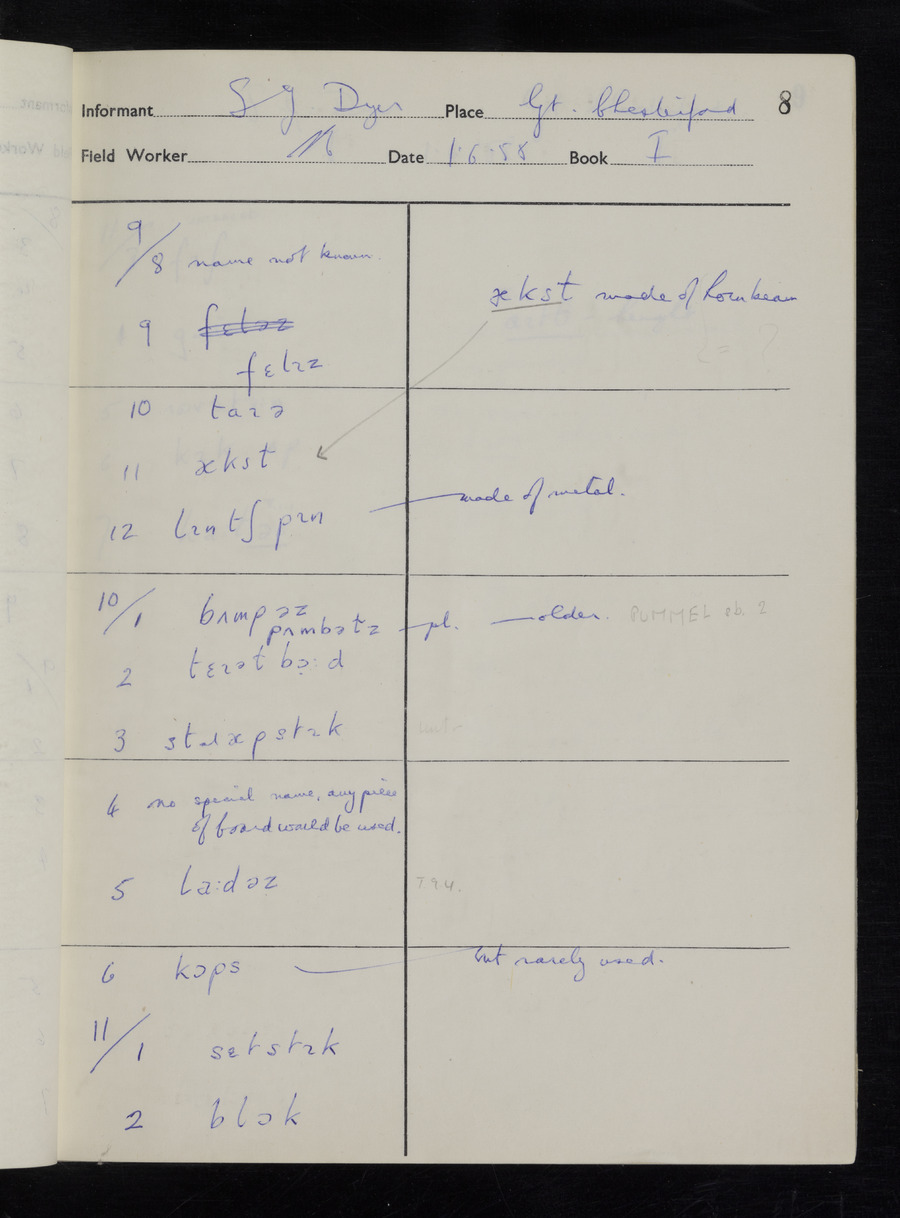 Informant S J Dyer Place Gt. Chesterford 8
Field Worker Date 1·6·58 Book I
9/8 name not known.
ækst made of hornbeam
9 fɛləz
fɛlɪz
10 taɪə
11 ækst
12 lɪntʃ pɪn made of metal.
10/1 bʌmpəz
pʌmbəts pl. older. PUMMEL ob. 2
2 tɛɪət bɔ:d
3 stɪk
4 no special name, any piece
of board would be used.
5 la:dəz T94.
6 kɔps but rarely used.
11/1 sɛtstɪk
2 blɔk